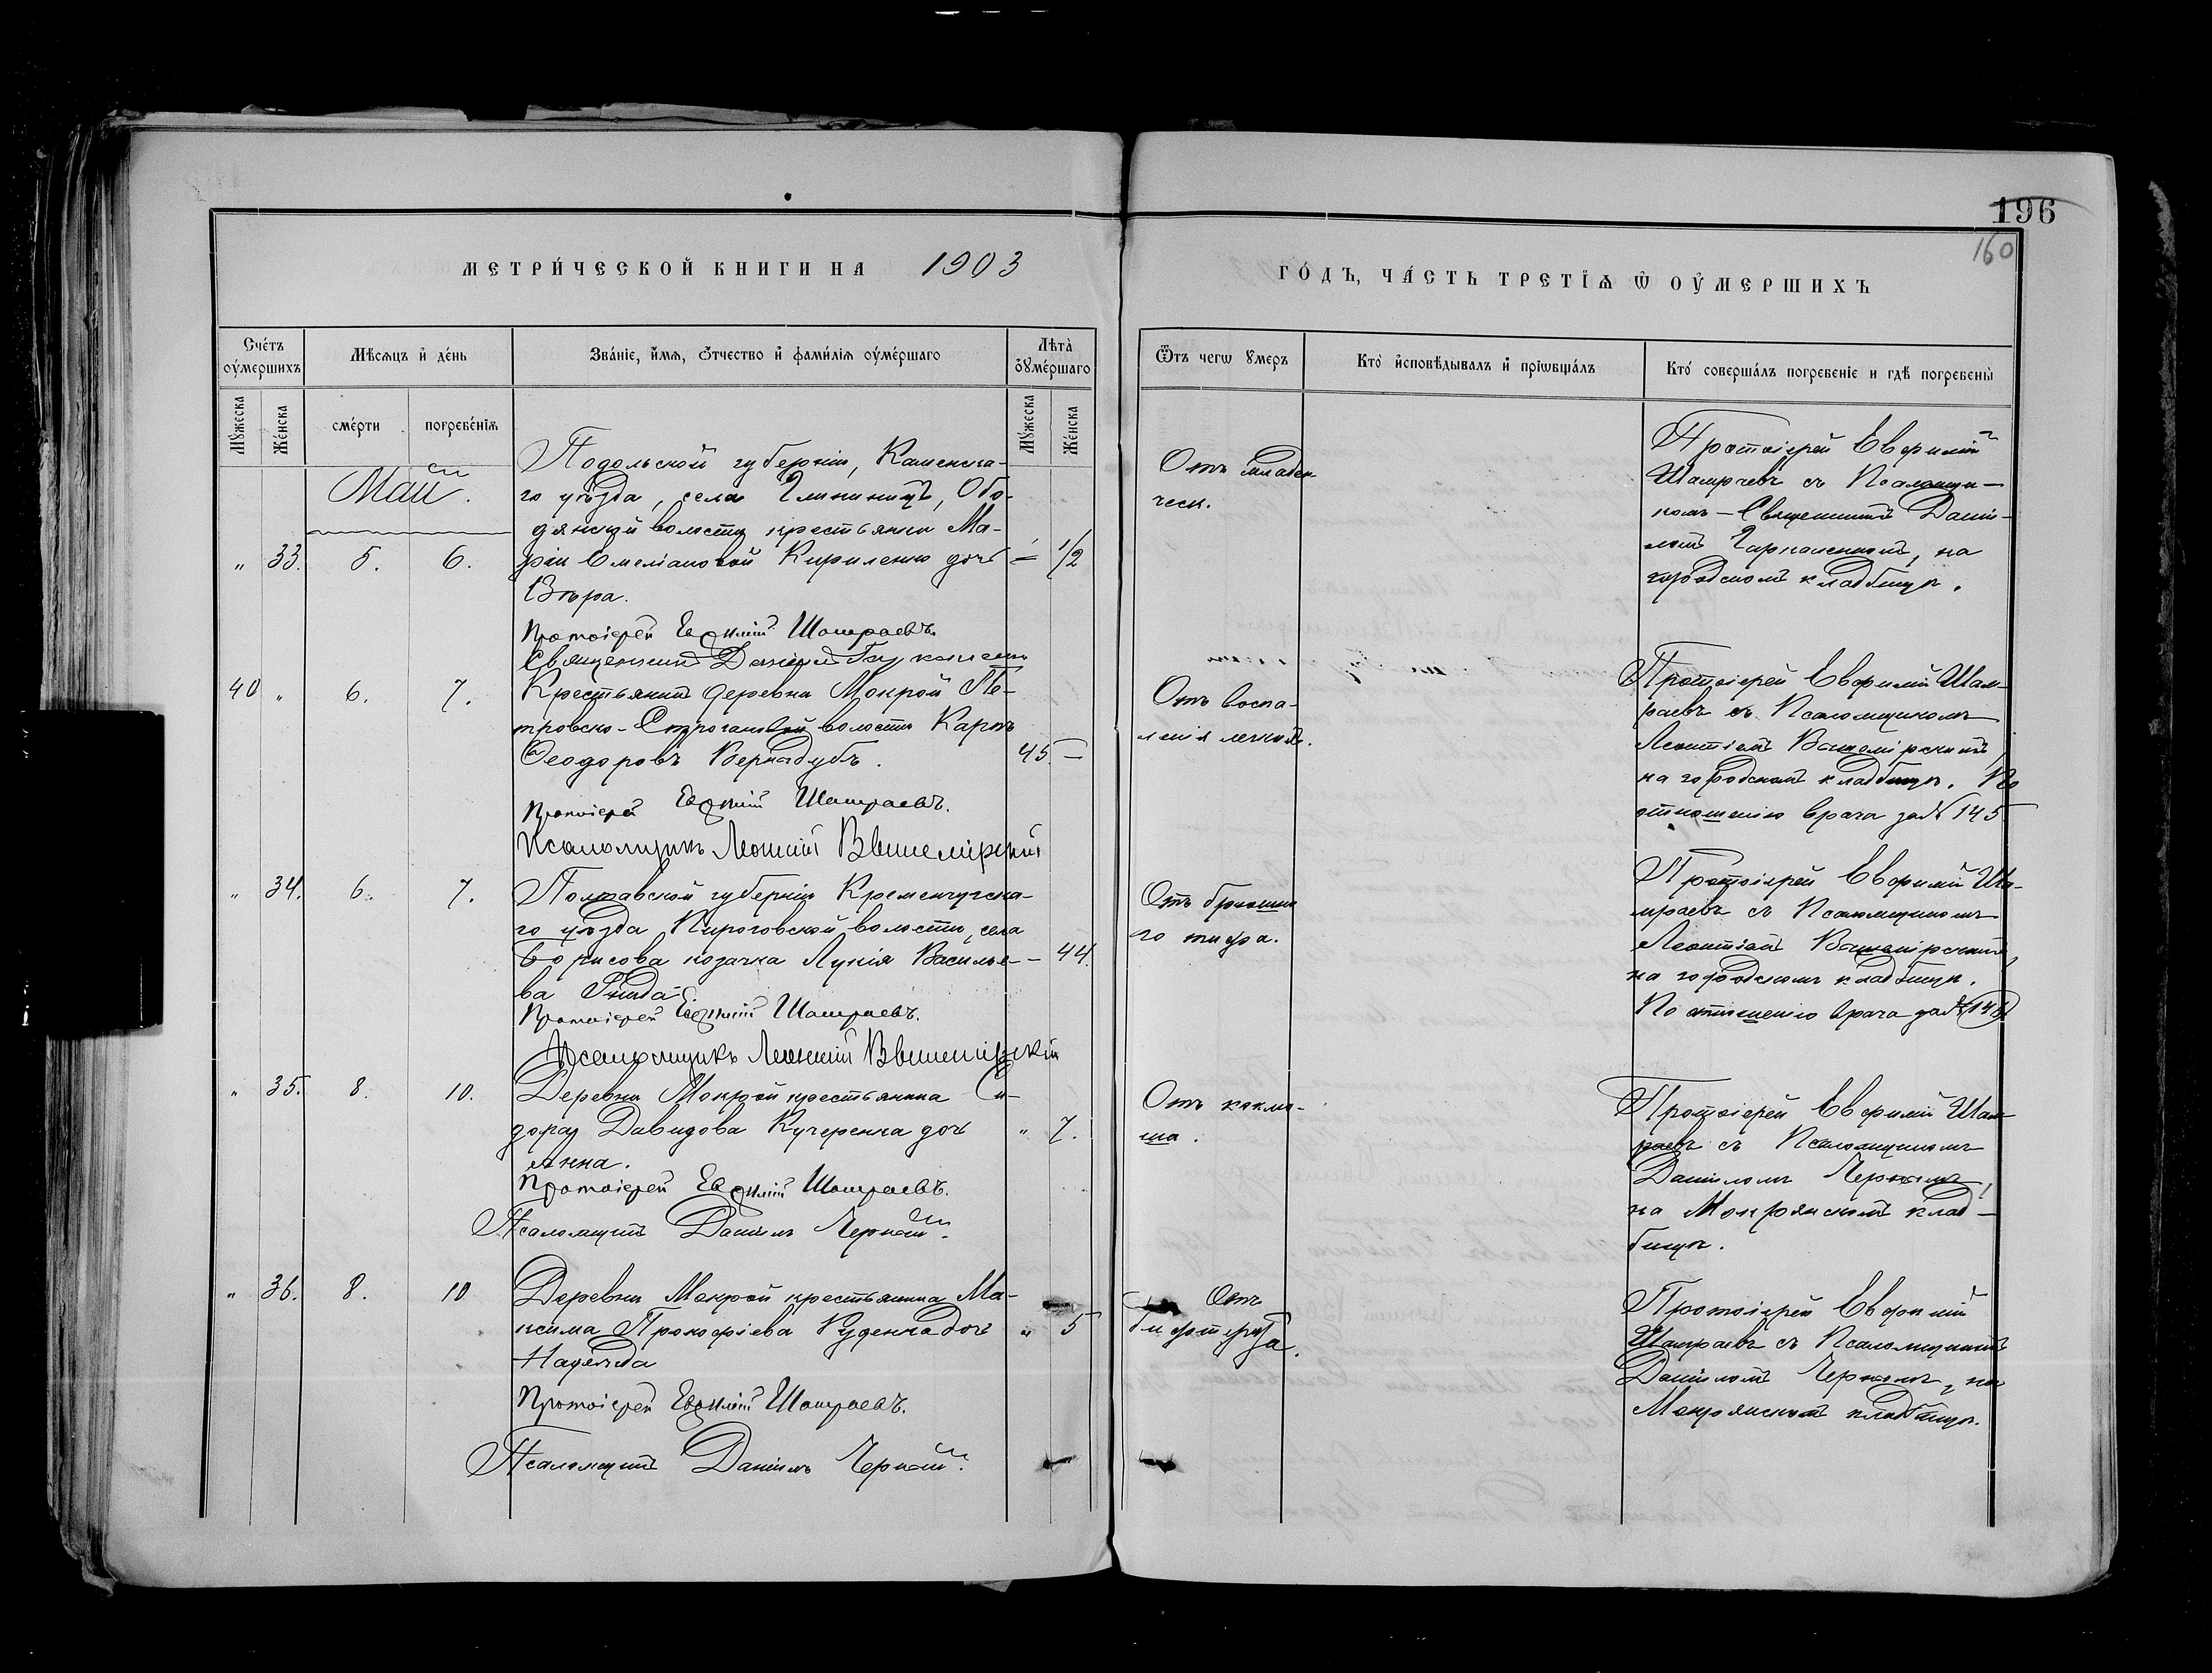 196
160
МЕТРИ́ЧЕСКОЙ КНИГИ НА 1903
ГО́ДЪ, ЧА́СТЬ ТРЕТЇѦ Ѡ ОУ҆МЕРШИХЪ
Счéтъ оу҆мершихъ
Мѣ́сѧцъ и҆ де́нь
Зва́нїе, и҆́мѧ, ѻ҆́тчество и҆ фами́лїѧ оу҆ме́ршаго
Лѣ́та оу҆ме́ршаго
Ѿ чегѡ ᲂумеръ
Кто̀ и҆сповѣ́дывалъ и҆ прїѡбща́лъ
Кто́ соверша́лъ погребенїе и гдѣ̀ погребены̀
Мꙋ́жеска
Же́нска
сме́рти
погребе́нїѧ
Мꙋ́жеска
Же́нска
Май.
Подольской губерніи, Каменска-
го уѣзда, села
дянской волости крестьянки Ма-
„ 33. 5. 6. ріи Омеліановой Кириленко дочь = 1/2
Вѣра.
Протоіерей Евѳимій Шамраевъ.
Священникъ Даніилъ
Отъ младен
ческ.
Протоіерей Евфимій
Шамраевъ съ Псаломщи-
комъ - Священникомъ Дані-
ломъ на
городскомъ кладбищѣ.
40 „ 6. 7. Крестьянинъ деревни Мокрой Пе-
тровско-Строгановой волости Карпъ
Ѳеодоровъ Вернадубъ. 45. —
Протоіерей Евѳимій Шамраевъ.
Псаломщикъ Леонтій Ввышемірскій
Отъ воспа-
ленія легкихъ.
Протоіерей Евфимій Шам-
раевъ съ Псаломщикомъ
Леонтіемъ
на городскомъ кладбищѣ. По
отношенію врача за № 145
„ 34. 6. 7. Полтавской губерніи Кременчугска-
го уѣзда Пироговской волости, села
Борисова козачка Лукія Василье- — 44.
ва Гнида.
Протоіерей Евѳимій Шамраевъ.
Псаломщикъ Леонтій Ввышемірскій
Отъ брюшна
го тифа.
Протоіерей Евфимій Ша-
мраевъ съ Псаломщикомъ
Леонтіемъ
на городскомъ кладбищѣ.
По отношенію врача за №
„ 35. 8. 10. Деревни Мокрой крестьянина Си-
дора Давидова Кучеренка дочь „ 7.
Анна.
Протоіерей Евѳимій Шамраевъ.
Псаломщикъ Даніилъ Черный.
Отъ коклю-
ша.
Протоіерей Евфимій Шам-
раевъ съ Псаломщикомъ
Даніиломъ Чернымъ,
на Мокрянскомъ клад-
бищѣ.
„ 36. 8. 10 Деревни Мокрой крестьянина Ма-
ксима Прокофіева Руденка дочь „ 5
Надежда
Протоіерей Евѳимій Шамраевъ.
Псаломщикъ Даніилъ Черный.
Отъ
дифтерита.
Протоіерей Евфимій
Шамраевъ съ Псаломщикомъ
Даніиломъ Чернымъ, на
Мокрянскомъ кладбищѣ.